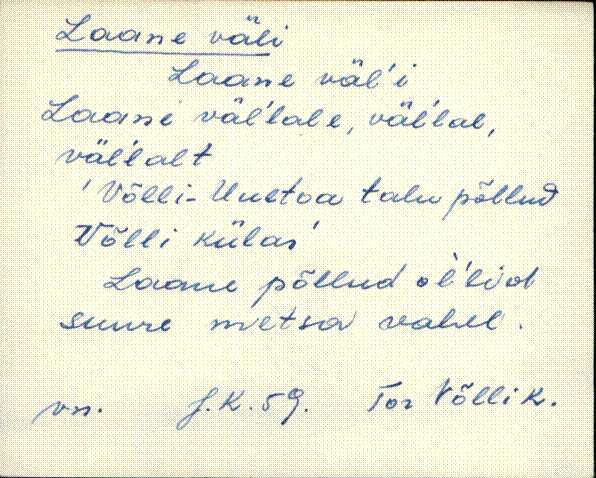 Laane väli
Laane väl'i
Laane väl'lale, väl'lal,
väl'lalt
'Võlli-Uuetoa talu põllud
Võlli külas'
Laane põllud ol'lid
suure metsa vahel.
vn. J.K. 59. Tor Võlli k.